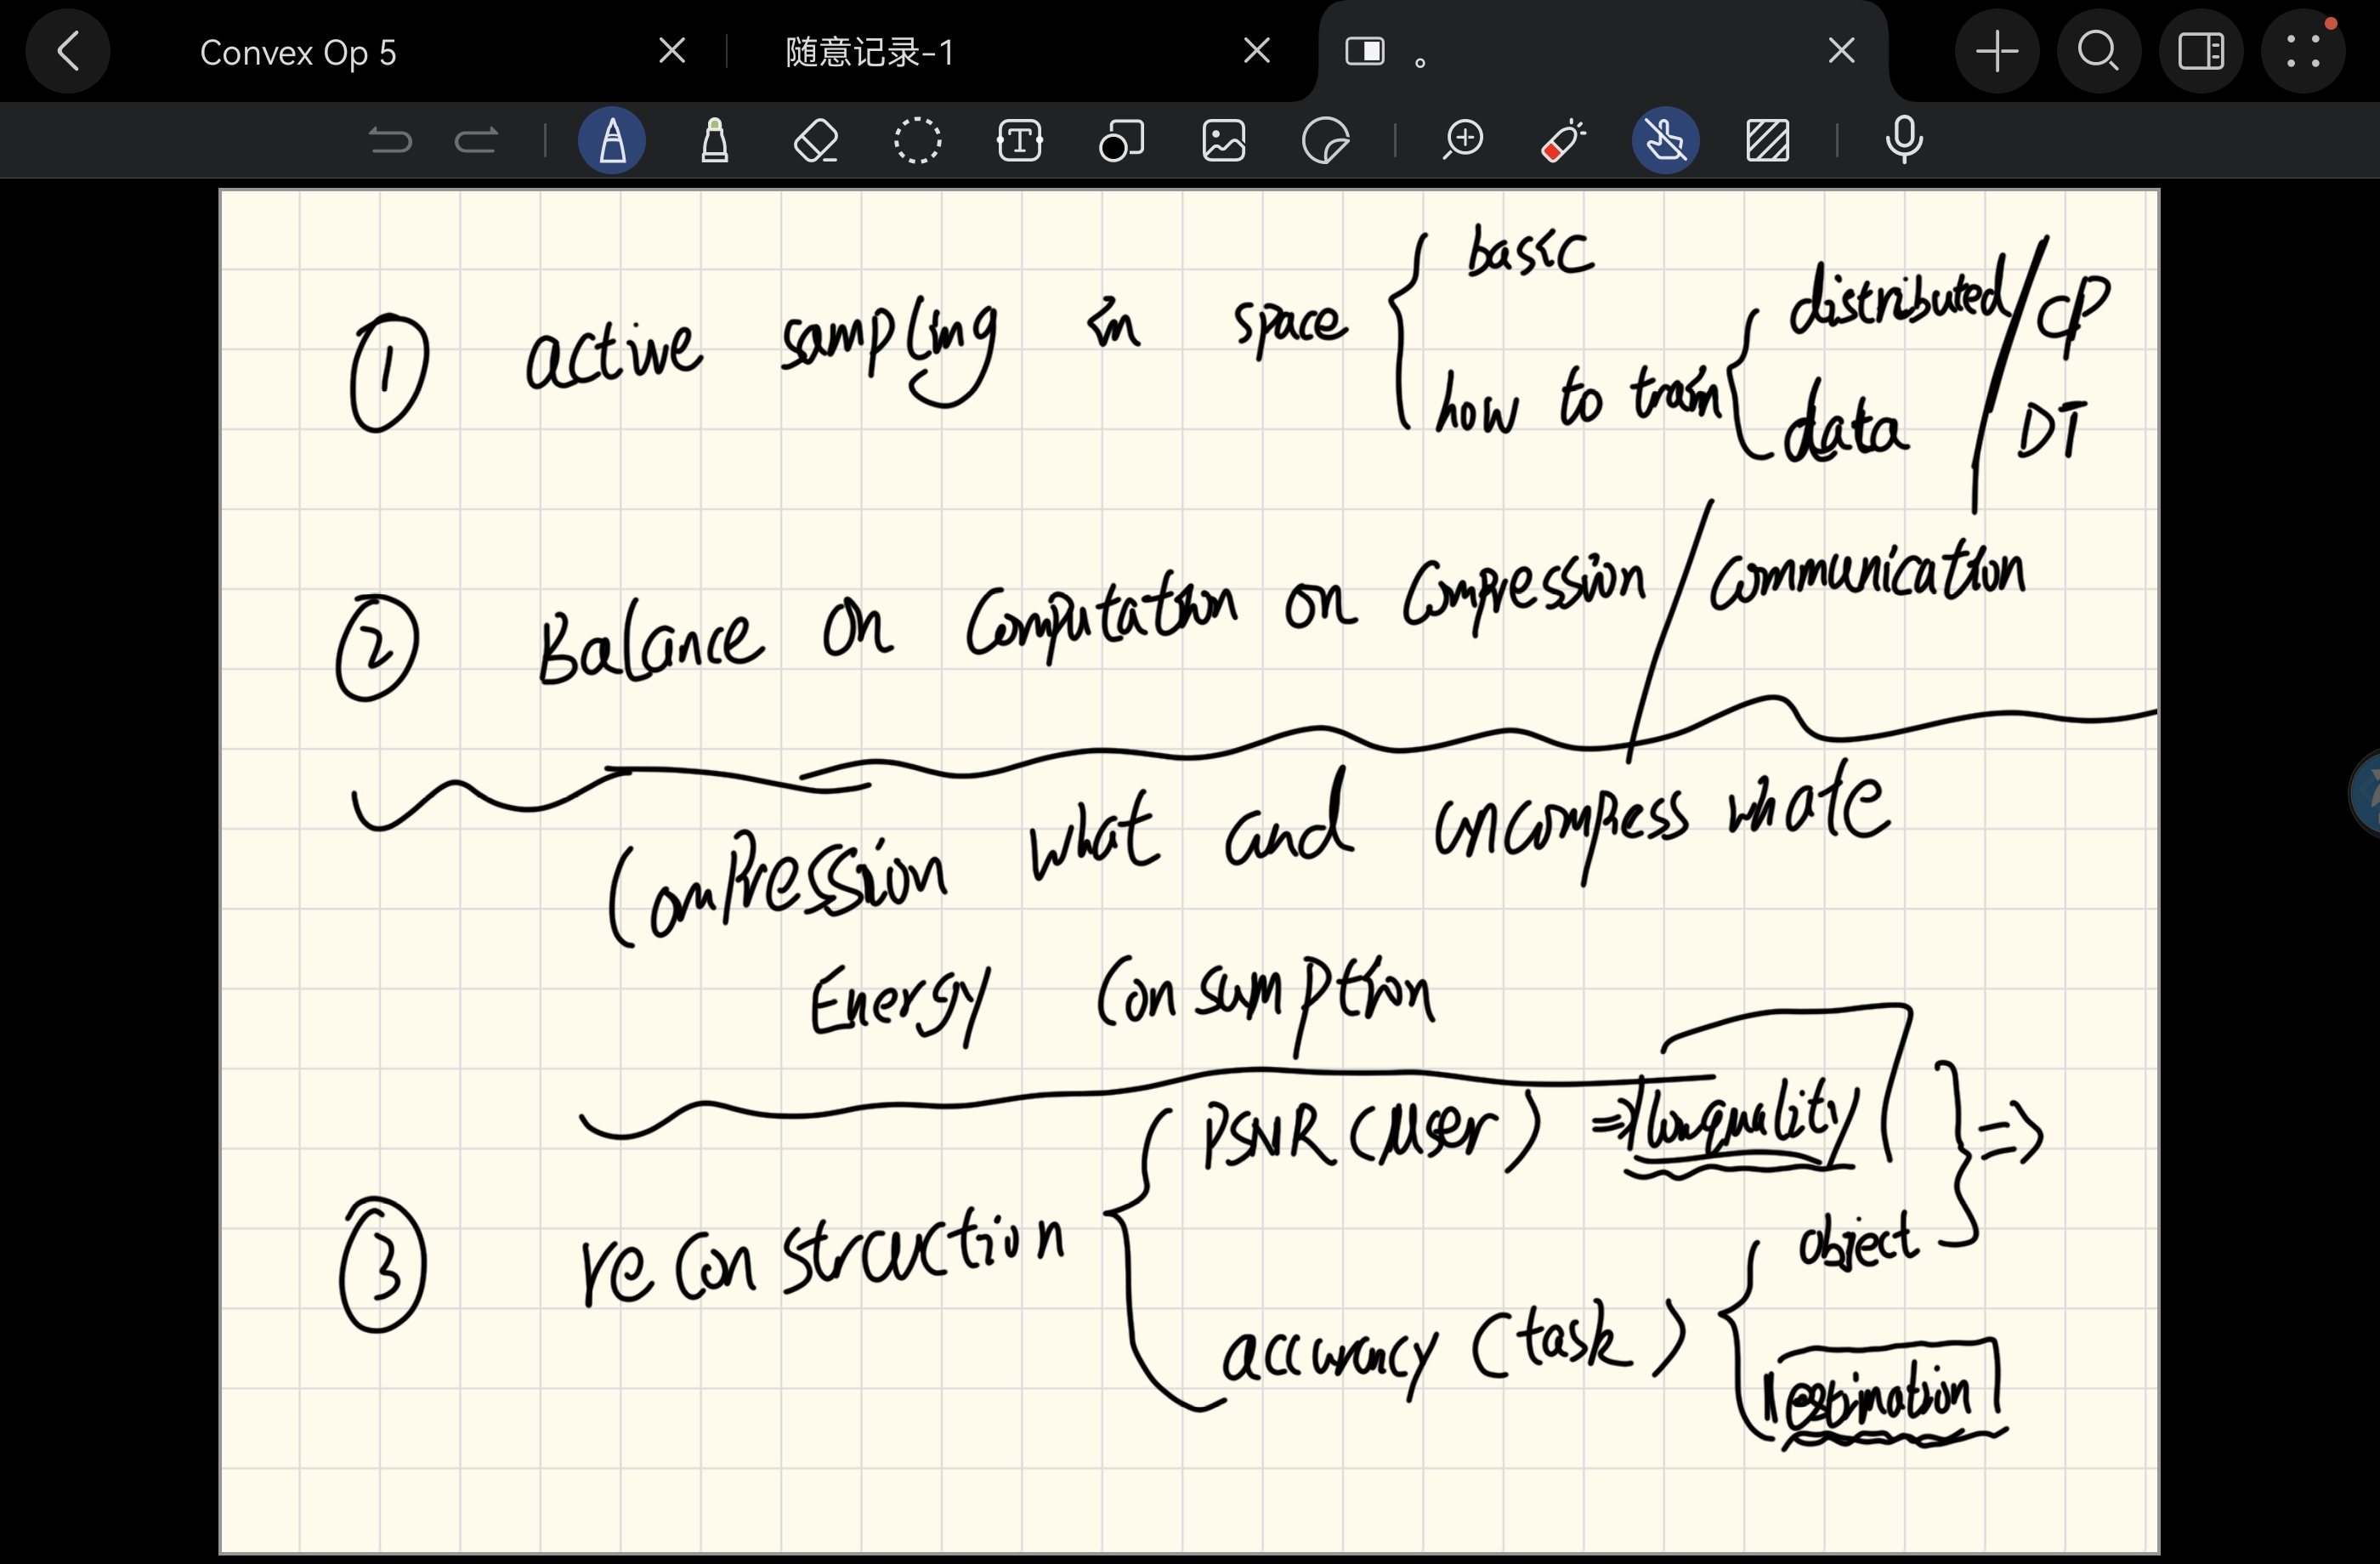 Convex Op 5
随意记录-1
。
① active sampling in space { basic
how to train { distributed / CP
data / DT
② Balance on Computation on Compression / Communication
Compression what and uncompress whate
Energy Consumption
③ reconstruction { PSNR (User) ⇒ } ⇒
accuracy (task) { object
estimation